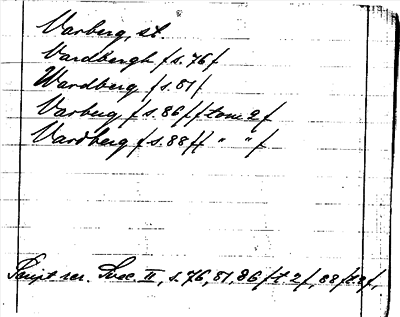 Varberg, st.
Vardbergh /s. 76/
Wardberg /s. 81/
Varberg /s. 86/ /tom 2/
Vardberg /s. 88/ / " " /
Script rer. Svec. II, s. 76, 81, 86 /t. 2/, 88 /t. 2/.